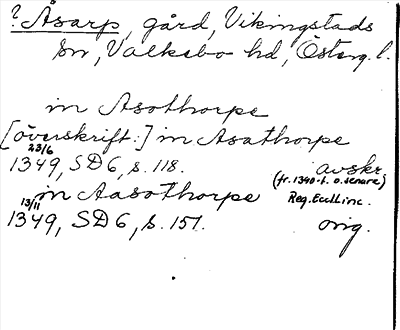 ? Åsarp, gård, Vikingstads
sn, Valkebo hd, Österg. l.
in Asothorpe
[överskrift:] in Asathorpe
23/6
1349, SD 6, s. 118. avskr.
(fr. 1340-t. o. senare)
in Aasothorpe Reg. Eccl. Linc.
13/11
1349, SD 6, s. 151. orig.